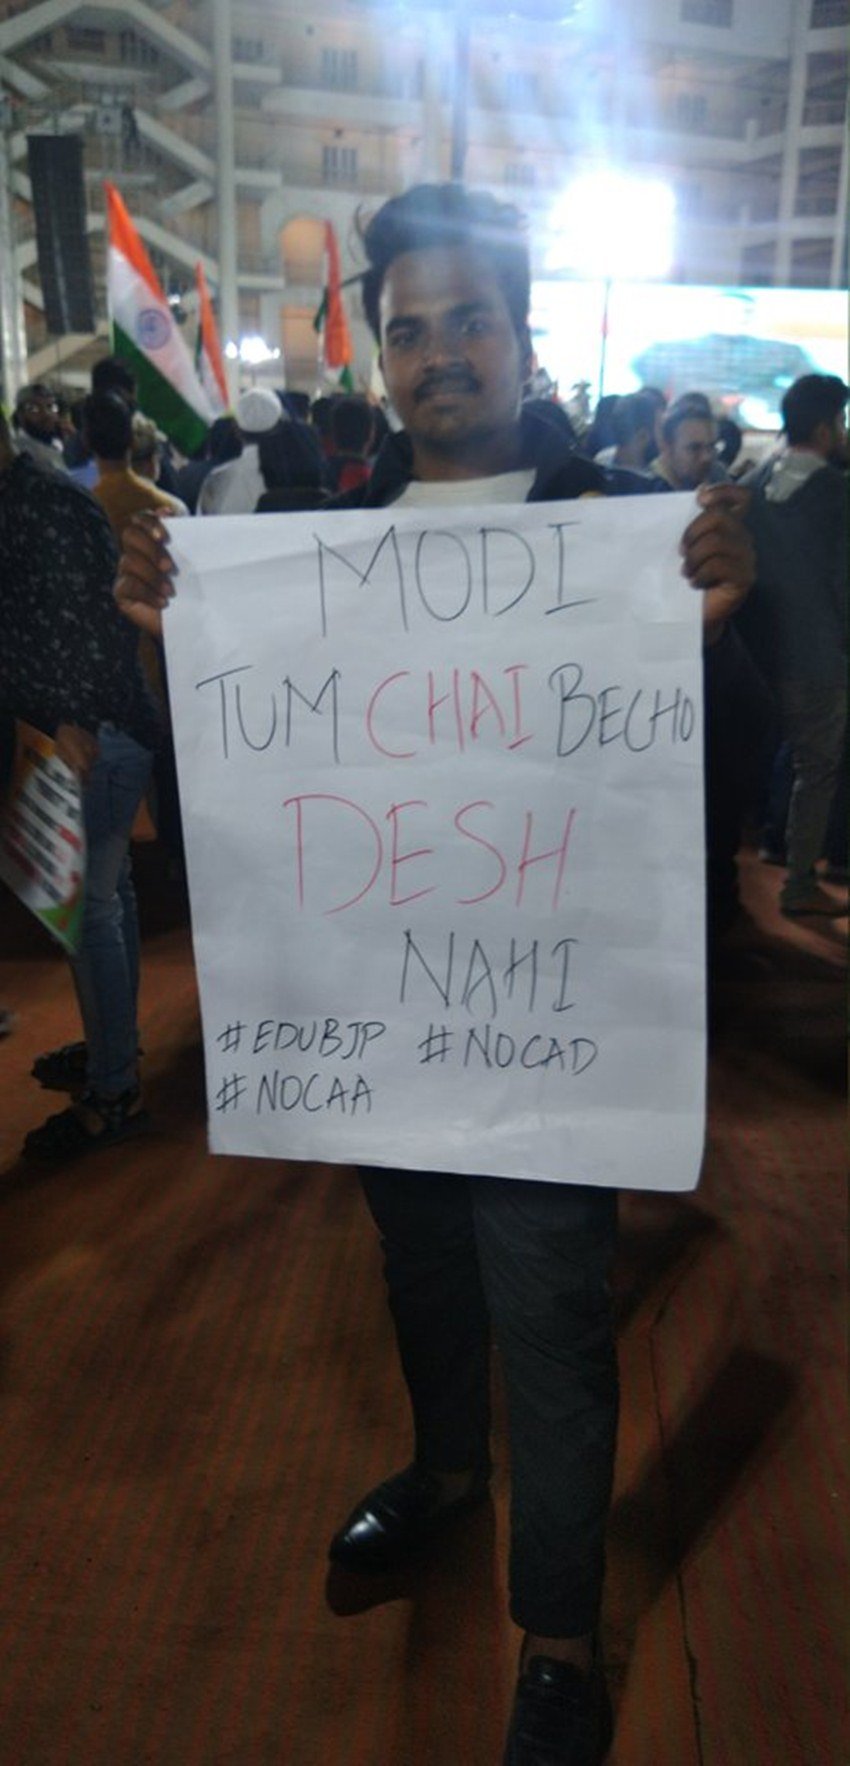 MODI
TUM CHAI BECHO
DESH
NAHI
#EDUBJP #NOCAD
#NOCAA